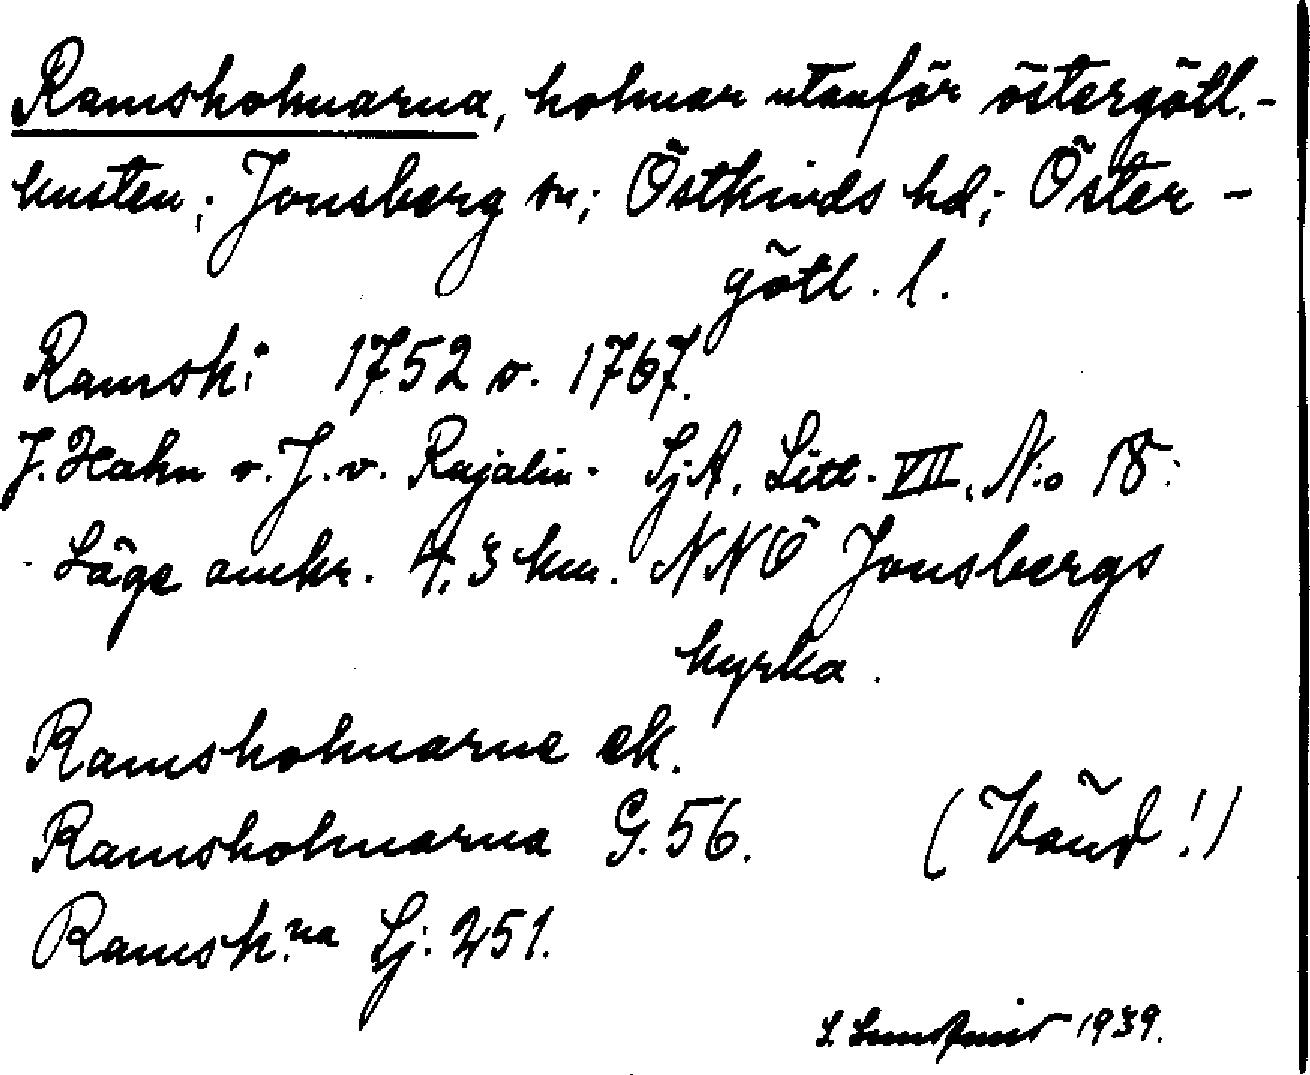 Ramsholmarna, holmar utanför östergötl.-
kusten; Jonsberg sn; Östkinds hd; Öster-
götl. l.
Ramsk: 1752 o. 1767.
J. Hahn o. J. v. Rajalin. Sj.A. Litt. VII. N:o 18:
Läge omkr. 4,3 km. NNÖ Jonsbergs
kyrka.
Ramsholmarne ek.
Ramsholmarna G. 56. (Vänd!)
Ramsh:na Sj. 251.
S. 1939.